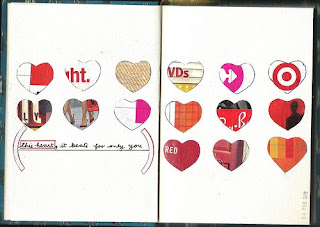 ht.
VDs
LY
this heart, it beats for only you
RED